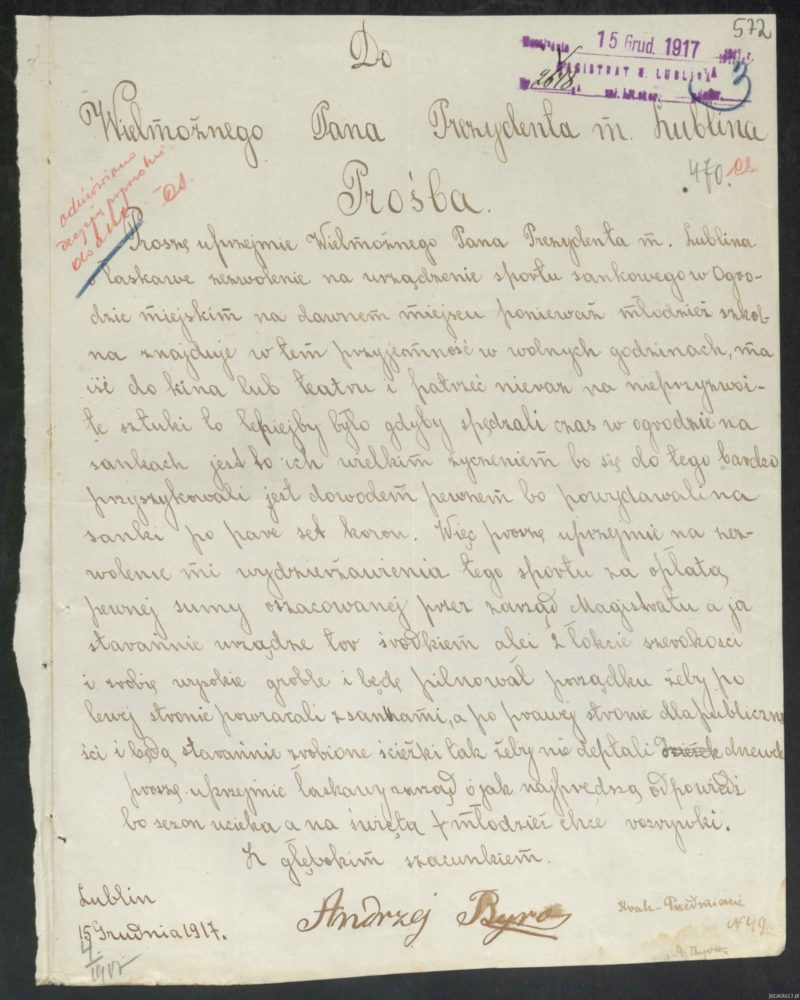 572
15 Grud. 1917
MAGISTRAT M. LUBLINA
3
Do
Wielmożnego Pana Prezydenta m. Lublina
470.
Prośba.
odmówiono
Proszę uprzejmie Wielmożnego Pana Prezydenta m. Lublina
o łaskawe zezwolenie na urządzenie sportu sankowego w Ogro-
dzie miejskim na dawnem miejscu ponieważ młodzież szkol-
na znajduje w tem przyjemność w wolnych godzinach, ma
iść do kina lub teatru i patrzeć nieraz na nieprzyzwoi-
te sztuki to lepiejby było gdyby spędzali czas w ogrodzie na
sankach jest to ich wielkim życzeniem bo się do tego bardzo
przyszykowali jest dowodem pewnem bo powydawali na
sanki po parę set koron. Więc proszę uprzejmie na zez-
wolenie mi wydzierżawienia tego sportu za opłatą
pewnej sumy oszacowanej przez zarząd Magistratu a ja
starannie urządze tor środkiem alei 2 łokcie szerokości
i zrobię wysokie groble i będę pilnował porządku żeby po
lewej stronie powracali z sankami, a po prawej stronie dla publiczno
ści i będą starannie zrobione ścieżki tak żeby nie deptali
proszę uprzejmie łaskawy zarząd o jak najprędszą odpowiedź
bo sezon ucieka a na święta młodzież chce rozrywki.
Z głębokim szacunkiem.
Lublin
15 Grudnia 1917.
Andrzej Byra